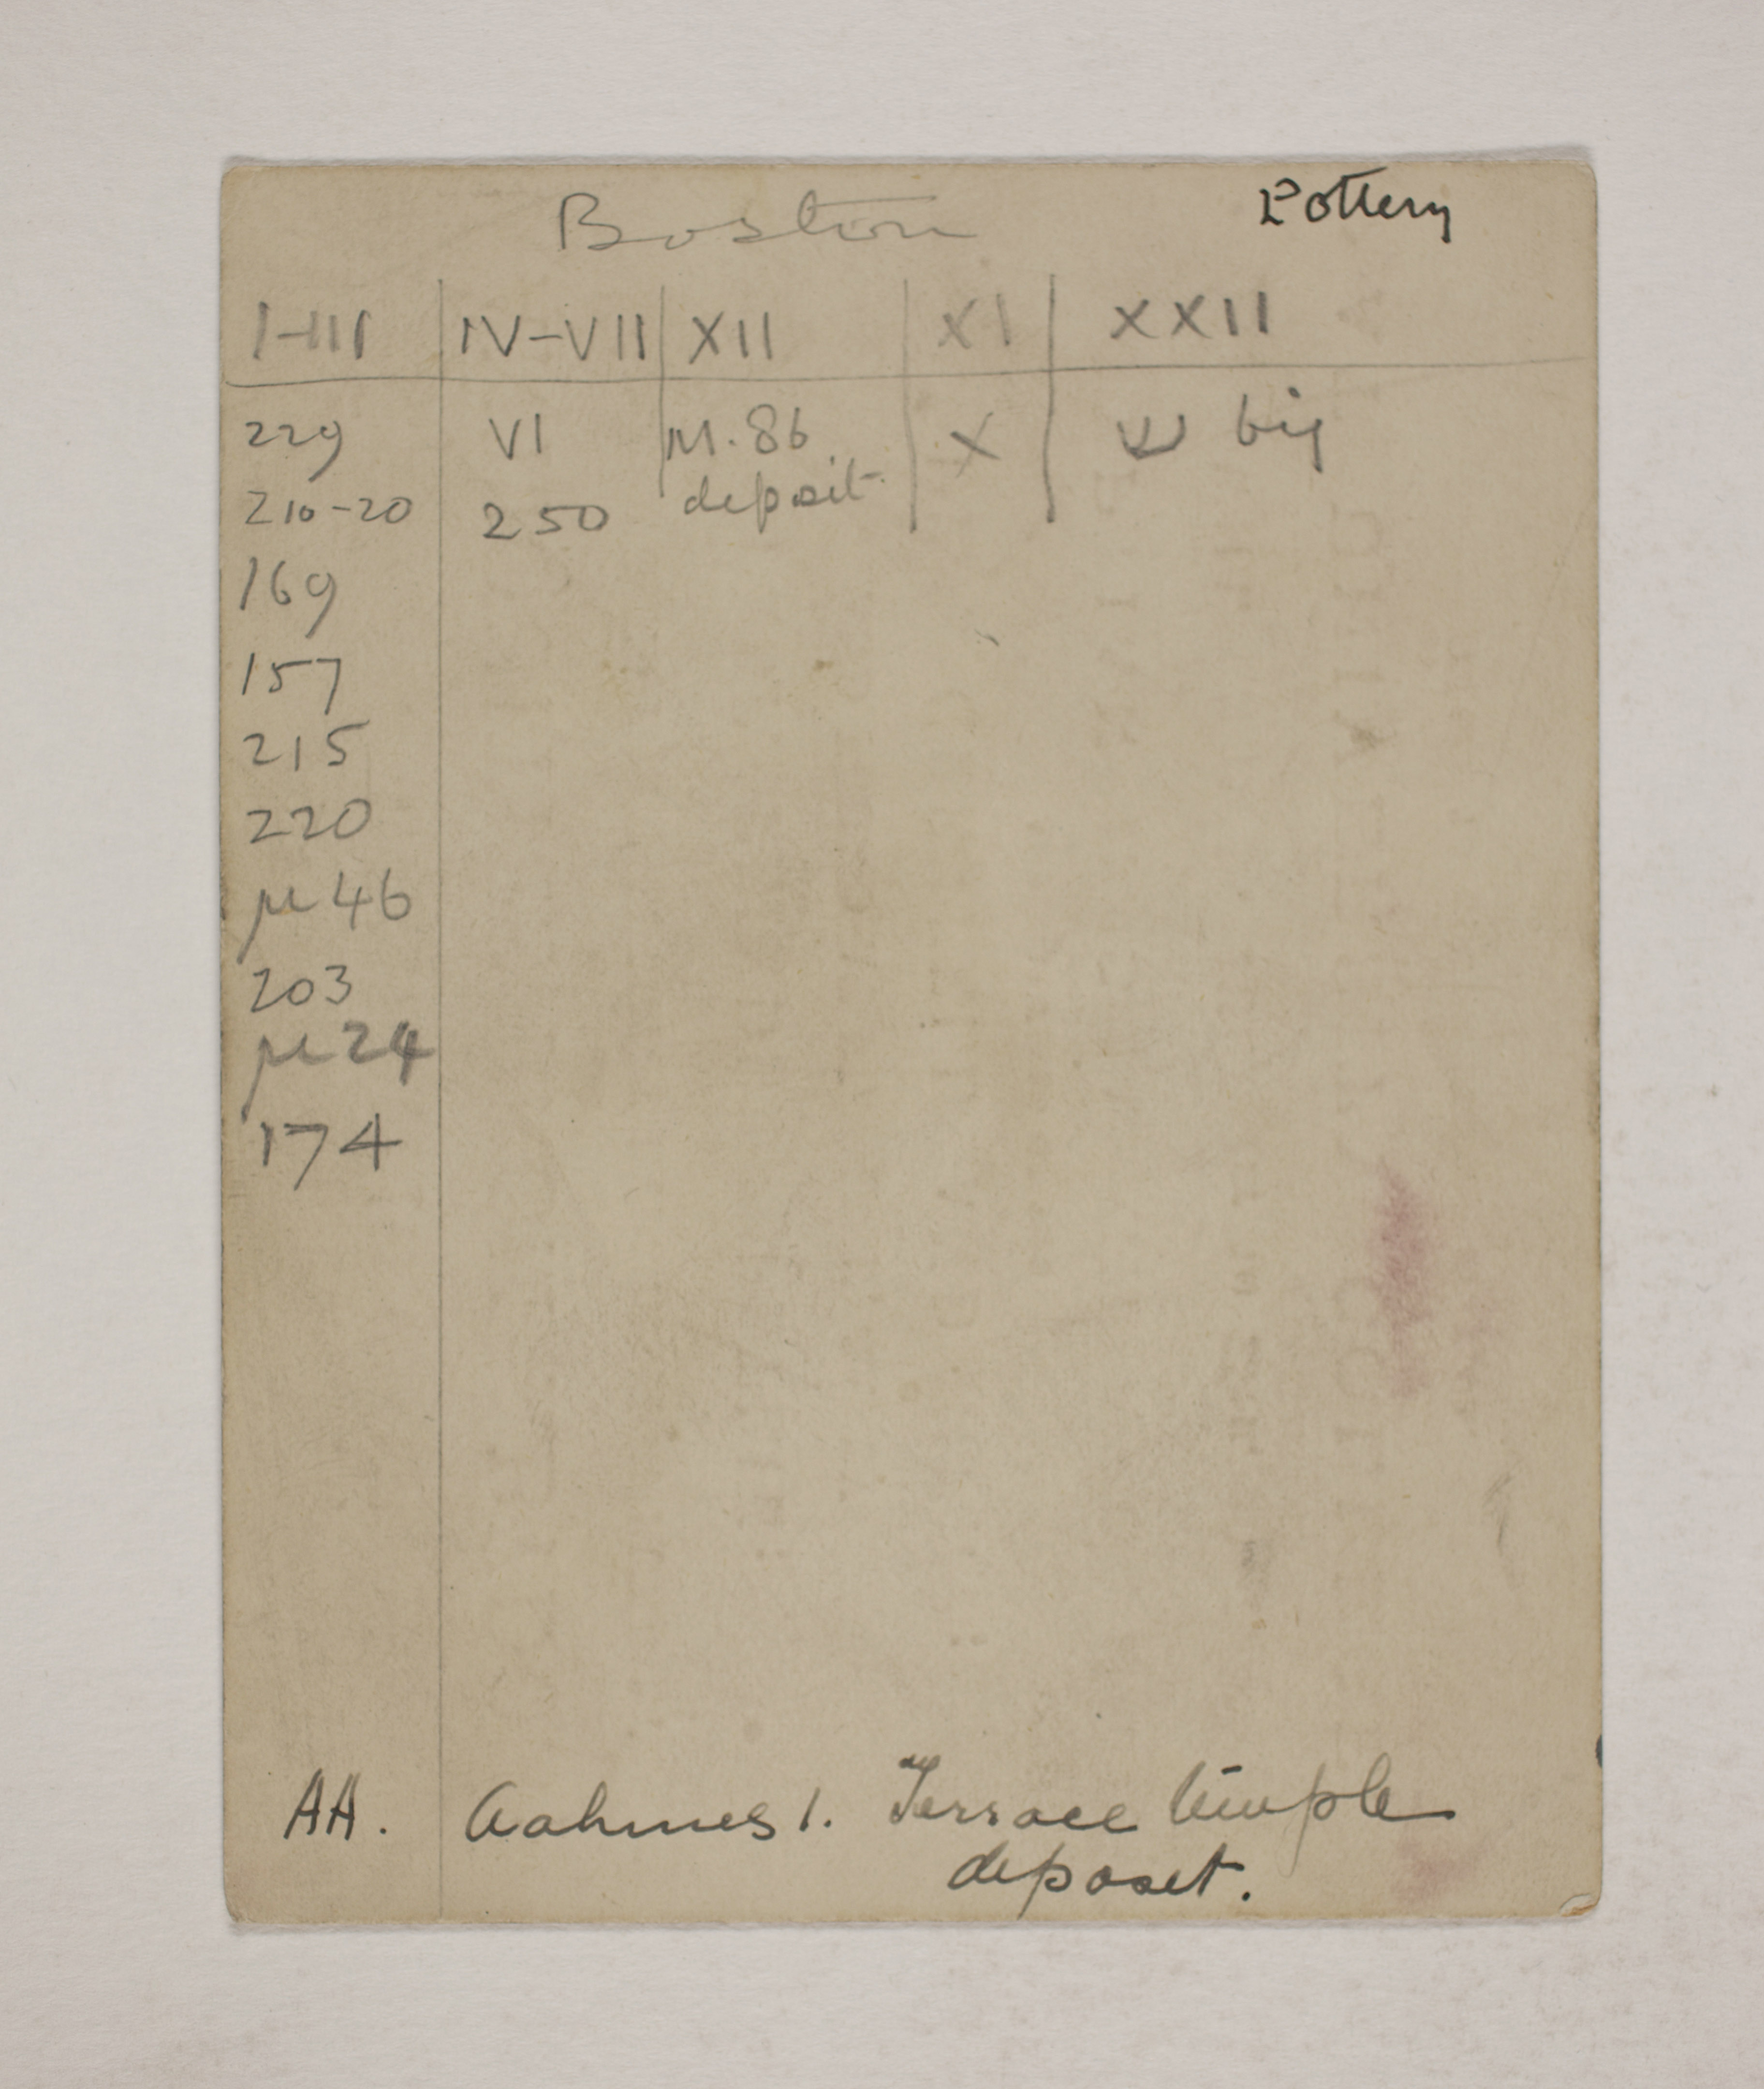 Boston Pottery
I-III IV-VII XII XI XXII
229 VI M.86 X W big
210-20 250 deposit
169
157
215
220
µ46
203
µ24
174
AA. Aahmes I. Terrace temple
deposit.